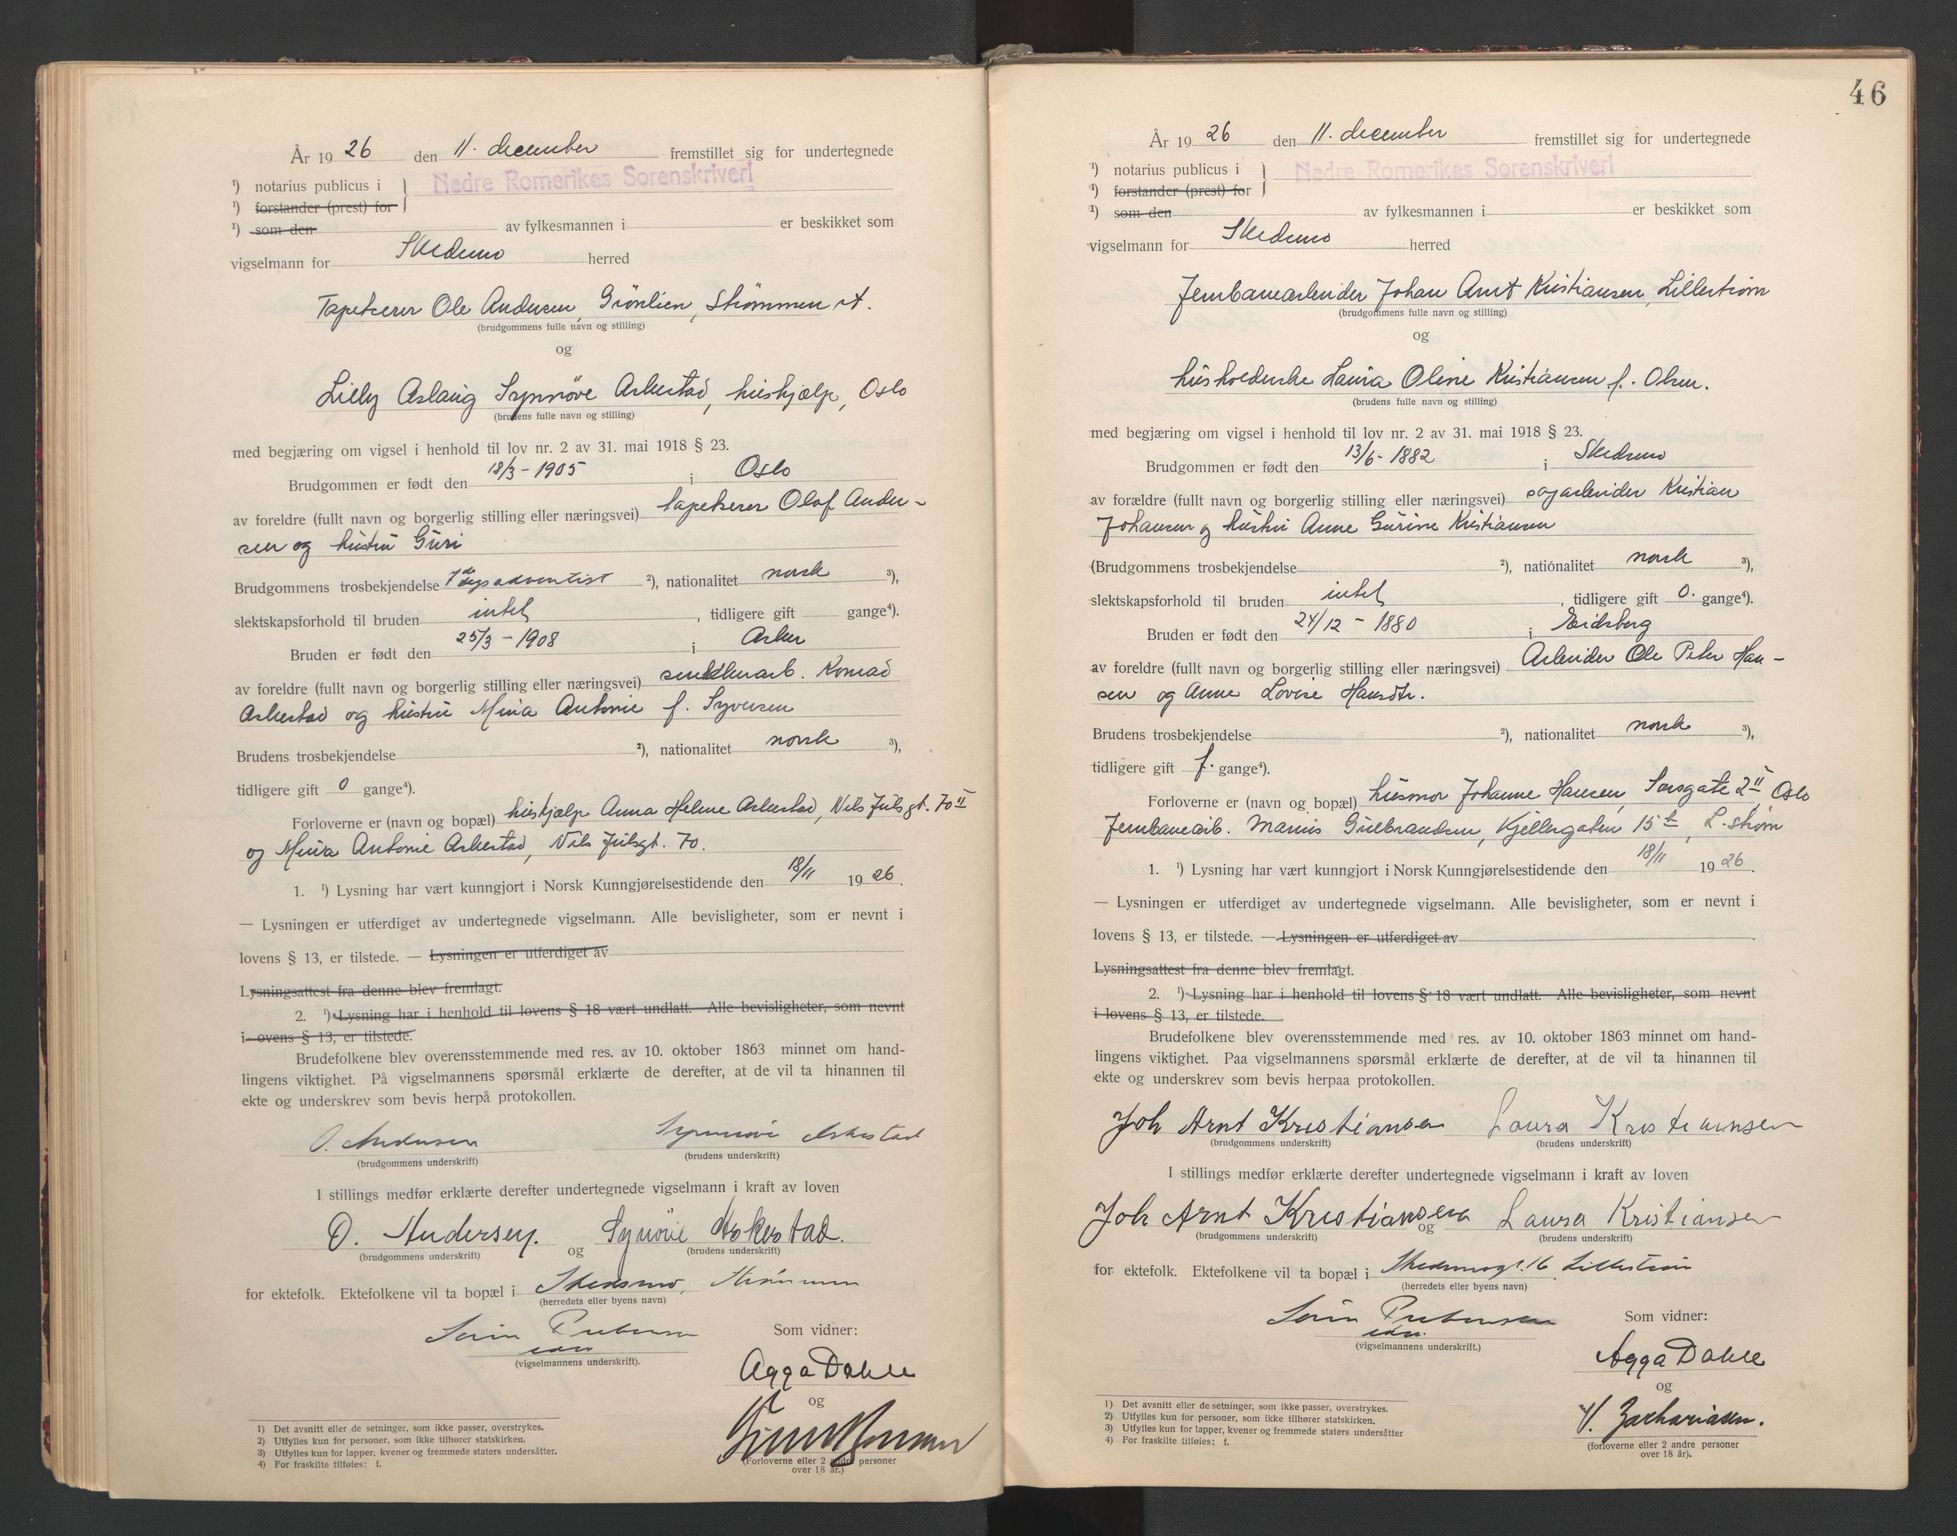 År 1926 den 11. december fremstillet sig for undertegnede
¹) notarius publicus i } Nedre Romerikes Sorenskriveri
¹) forstander (prest) for
¹) som den av fylkesmannen i er beskikket som
vigselmann for Skedsmo herred
Tapetserer Ole Andersen, Grönlien, Strømmen st.
(brudgommens fulle navn og stilling)
og
Lilly Aslaug Synnøve Askestad, hushjælp, Oslo
(brudens fulle navn og stilling)
med begjæring om vigsel i henhold til lov nr. 2 av 31. mai 1918 § 23.
Brudgommen er født den 18/3 - 1905 i Oslo
av foreldre (fullt navn og borgerlig stilling eller næringsvei) tapetserer Olaf Ander-
sen og hustru Guri
Brudgommens trosbekjendelse 7de dags adventist ²), nationalitet norsk ³),
slektskapsforhold til bruden intet, tidligere gift gange⁴).
Bruden er født den 25/3 - 1908 i Asker
av foreldre (fullt navn og borgerlig stilling eller næringsvei) Konrad
Askestad og hustru Mina Antonie f. Syversen
Brudens trosbekjendelse ²), nationalitet norsk ³),
tidligere gift 0 gange⁴).
Forloverne er (navn og bopæl) hushjælp Anna Helene Askestad, Nils Juilsgt. 70 II
og Mina Antonie Askestad, Nils Juilsgt. 70.
1. ¹) Lysning har vært kunngjort i Norsk Kunngjørelsestidende den 18/11 1926.
— Lysningen er utferdiget av undertegnede vigselmann. Alle bevisligheter, som er nevnt i
lovens § 13, er tilstede. — Lysningen er utferdiget av
Lysningsattest fra denne blev fremlagt.
2. ¹) Lysning har i henhold til lovens § 18 vært undlatt. Alle bevisligheter, som nevnt
i lovens § 13, er tilstede.
Brudefolkene blev overensstemmende med res. av 10. oktober 1863 minnet om hand-
lingens viktighet. På vigselmannens spørsmål erklærte de derefter, at de vil ta hinannen til
ekte og underskrev som bevis herpå protokollen.
O. Andersen Synnøve Askestad
(brudgommens underskrift) (brudens underskrift)
I stillings medfør erklærte derefter undertegnede vigselmann i kraft av loven
O. Andersen. og Synöve Askestad.
(brudgommens underskrift) (brudens underskrift)
for ektefolk. Ektefolkene vil ta bopæl i Skedsmo, Strømmen
(herredets eller byens navn)
Som vidner:
(vigselmannens underskrift).
Agga Dahle
og
(Forloverne eller 2 andre personer
over 18 år.)
1) Det avsnitt eller de setninger, som ikke passer, overstrykes.
2) Utfylles kun for personer, som ikke tilhører statskirken.
3) Utfylles kun for lapper, kvener og fremmede staters undersåtter.
4) For fraskilte tilføies: f.
46
År 1926 den 11. december fremstillet sig for undertegnede
¹) notarius publicus i } Nedre Romerikes Sorenskriveri
¹) forstander (prest) for
¹) som den av fylkesmannen i er beskikket som
vigselmann for Skedsmo herred
Jernbanearbeider Johan Arnt Kristiansen, Lillestrøm
(brudgommens fulle navn og stilling)
og
husholderske Laura Oline Kristiansen f. Olsen.
(brudens fulle navn og stilling)
med begjæring om vigsel i henhold til lov nr. 2 av 31. mai 1918 § 23.
Brudgommen er født den 13/6 - 1882 i Skedsmo
av forældre (fullt navn og borgerlig stilling eller næringsvei) sagarbeider Kristian
Johansen og hustru Anne Gurine Kristiansen
(Brudgommens trosbekjendelse ²), nationalitet norsk ³),
slektskapsforhold til bruden intet, tidligere gift 0. gange⁴).
Bruden er født den 24/12 - 1880 i Eidsberg
av foreldre (fullt navn og borgerlig stilling eller næringsvei) Arbeider Ole Peter Han-
sen og Anne Lovise Hansdtr.
Brudens trosbekjendelse ²), nationalitet norsk ³),
tidligere gift f. gange⁴).
Forloverne er (navn og bopæl) husmor Johanne Hansen, Sarsgate 2 II Oslo
Jernbanearb. Marius Gulbrandsen, Kjellergaten 15 b, L.strøm
1. ¹) Lysning har vært kunngjort i Norsk Kunngjørelsestidende den 18/11 1926.
— Lysningen er utferdiget av undertegnede vigselmann. Alle bevisligheter, som er nevnt i
lovens § 13, er tilstede. — Lysningen er utferdiget av
Lysningsattest fra denne blev fremlagt.
2. ¹) Lysning har i henhold til lovens § 18 vært undlatt. Alle bevisligheter, som nevnt
i lovens § 13, er tilstede.
Brudefolkene blev overensstemmende med res. av 10. oktober 1863 minnet om hand-
lingens viktighet. Paa vigselmannens spørsmål erklærte de derefter, at de vil ta hinannen til
ekte og underskrev som bevis herpaa protokollen.
Joh Arnt Kristiansen Laura Kristiansen
(brudgommens underskrift) (brudens underskrift)
I stillings medfør erklærte derefter undertegnede vigselmann i kraft av loven
Joh Arnt Kristiansen og Laura Kristiansen
(brudgommens underskrift) (brudens underskrift)
for ektefolk. Ektefolkene vil ta bopæl i Skedsmogt. 16 Lillestrøm
(herredets eller byens navn)
Som vidner:
(vigselmannens underskrift.)
Agga Dahle
og
V. Zachariasen.
(forloverne eller 2 andre personer
over 18 år).
1) Det avsnitt eller de setninger, som ikke passer, overstrykes.
2) Utfylles kun for personer, som ikke tilhører statskirken.
3) Utfylles kun for lapper, kvener og fremmede staters undersåtter
4) For fraskilte tilføies: f.